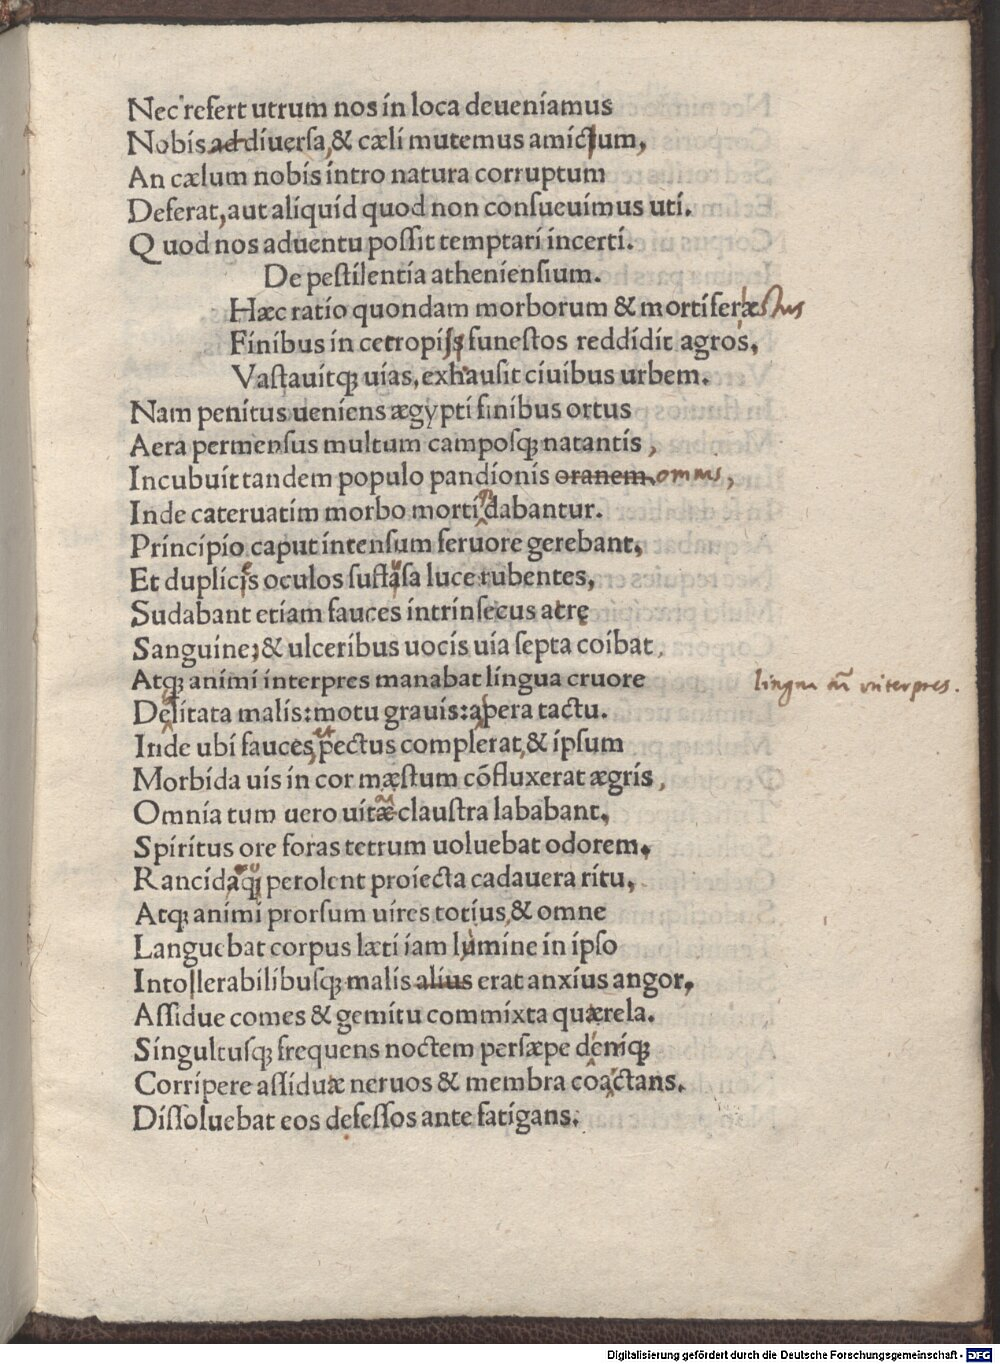 Nec refert utrum nos in loca deueniamus
Nobis ad diuersa, & cæli mutemus amictum,
An cælum nobis intro natura corruptum
Deferat, aut aliquid quod non consueuimus uti.
Quod nos aduentu possit temptari incerti.
De pestilentia atheniensium.
Hæc ratio quondam morborum & mortiferæ stus
Finibus in cetropiis funestos reddidit agros,
Vastauitq; uias, exhausit ciuibus urbem.
Nam penitus ueniens ægypti finibus ortus
Aera permensus multum camposq; natantis,
Incubuit tandem populo pandionis oranem omnis,
Inde cateruatim morbo morti dabantur.
Principio caput intensum feruore gerebant,
Et duplicis oculos suffusa luce rubentes,
Sudabant etiam fauces intrinsecus atrę
Sanguine; & ulceribus uocis uia septa coibat,
Atq; animi interpres manabat lingua cruore
lingua aīi interpres.
Delitata malis: motu grauis: aspera tactu.
Inde ubi fauces, et pectus complerat, & ipsum
Morbida uis in cor mæstum cōfluxerat ægris,
Omnia tum uero uitæ claustra lababant,
Spiritus ore foras tetrum uoluebat odorem,
Rancida q; perolent proiecta cadauera ritu,
Atq; animi prorsum uires totius, & omne
Languebat corpus læti iam lumine in ipso
Intollerabilibusq; malis alius erat anxius angor,
Assidue comes & gemitu commixta quærela.
Singultusq; frequens noctem persæpe deniq;
Corripere assiduæ neruos & membra coactans.
Dissoluebat eos defessos ante fatigans.
Digitalisierung gefördert durch die Deutsche Forschungsgemeinschaft - DFG